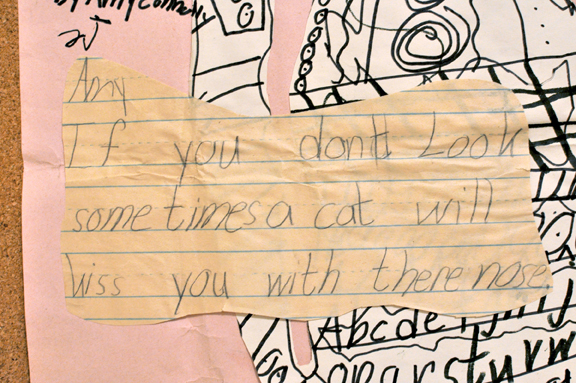 by Amy
Amy
If you dont Look
sometimes a cat will
kiss you with there nose.
Abcdefghij
opqrstuvw